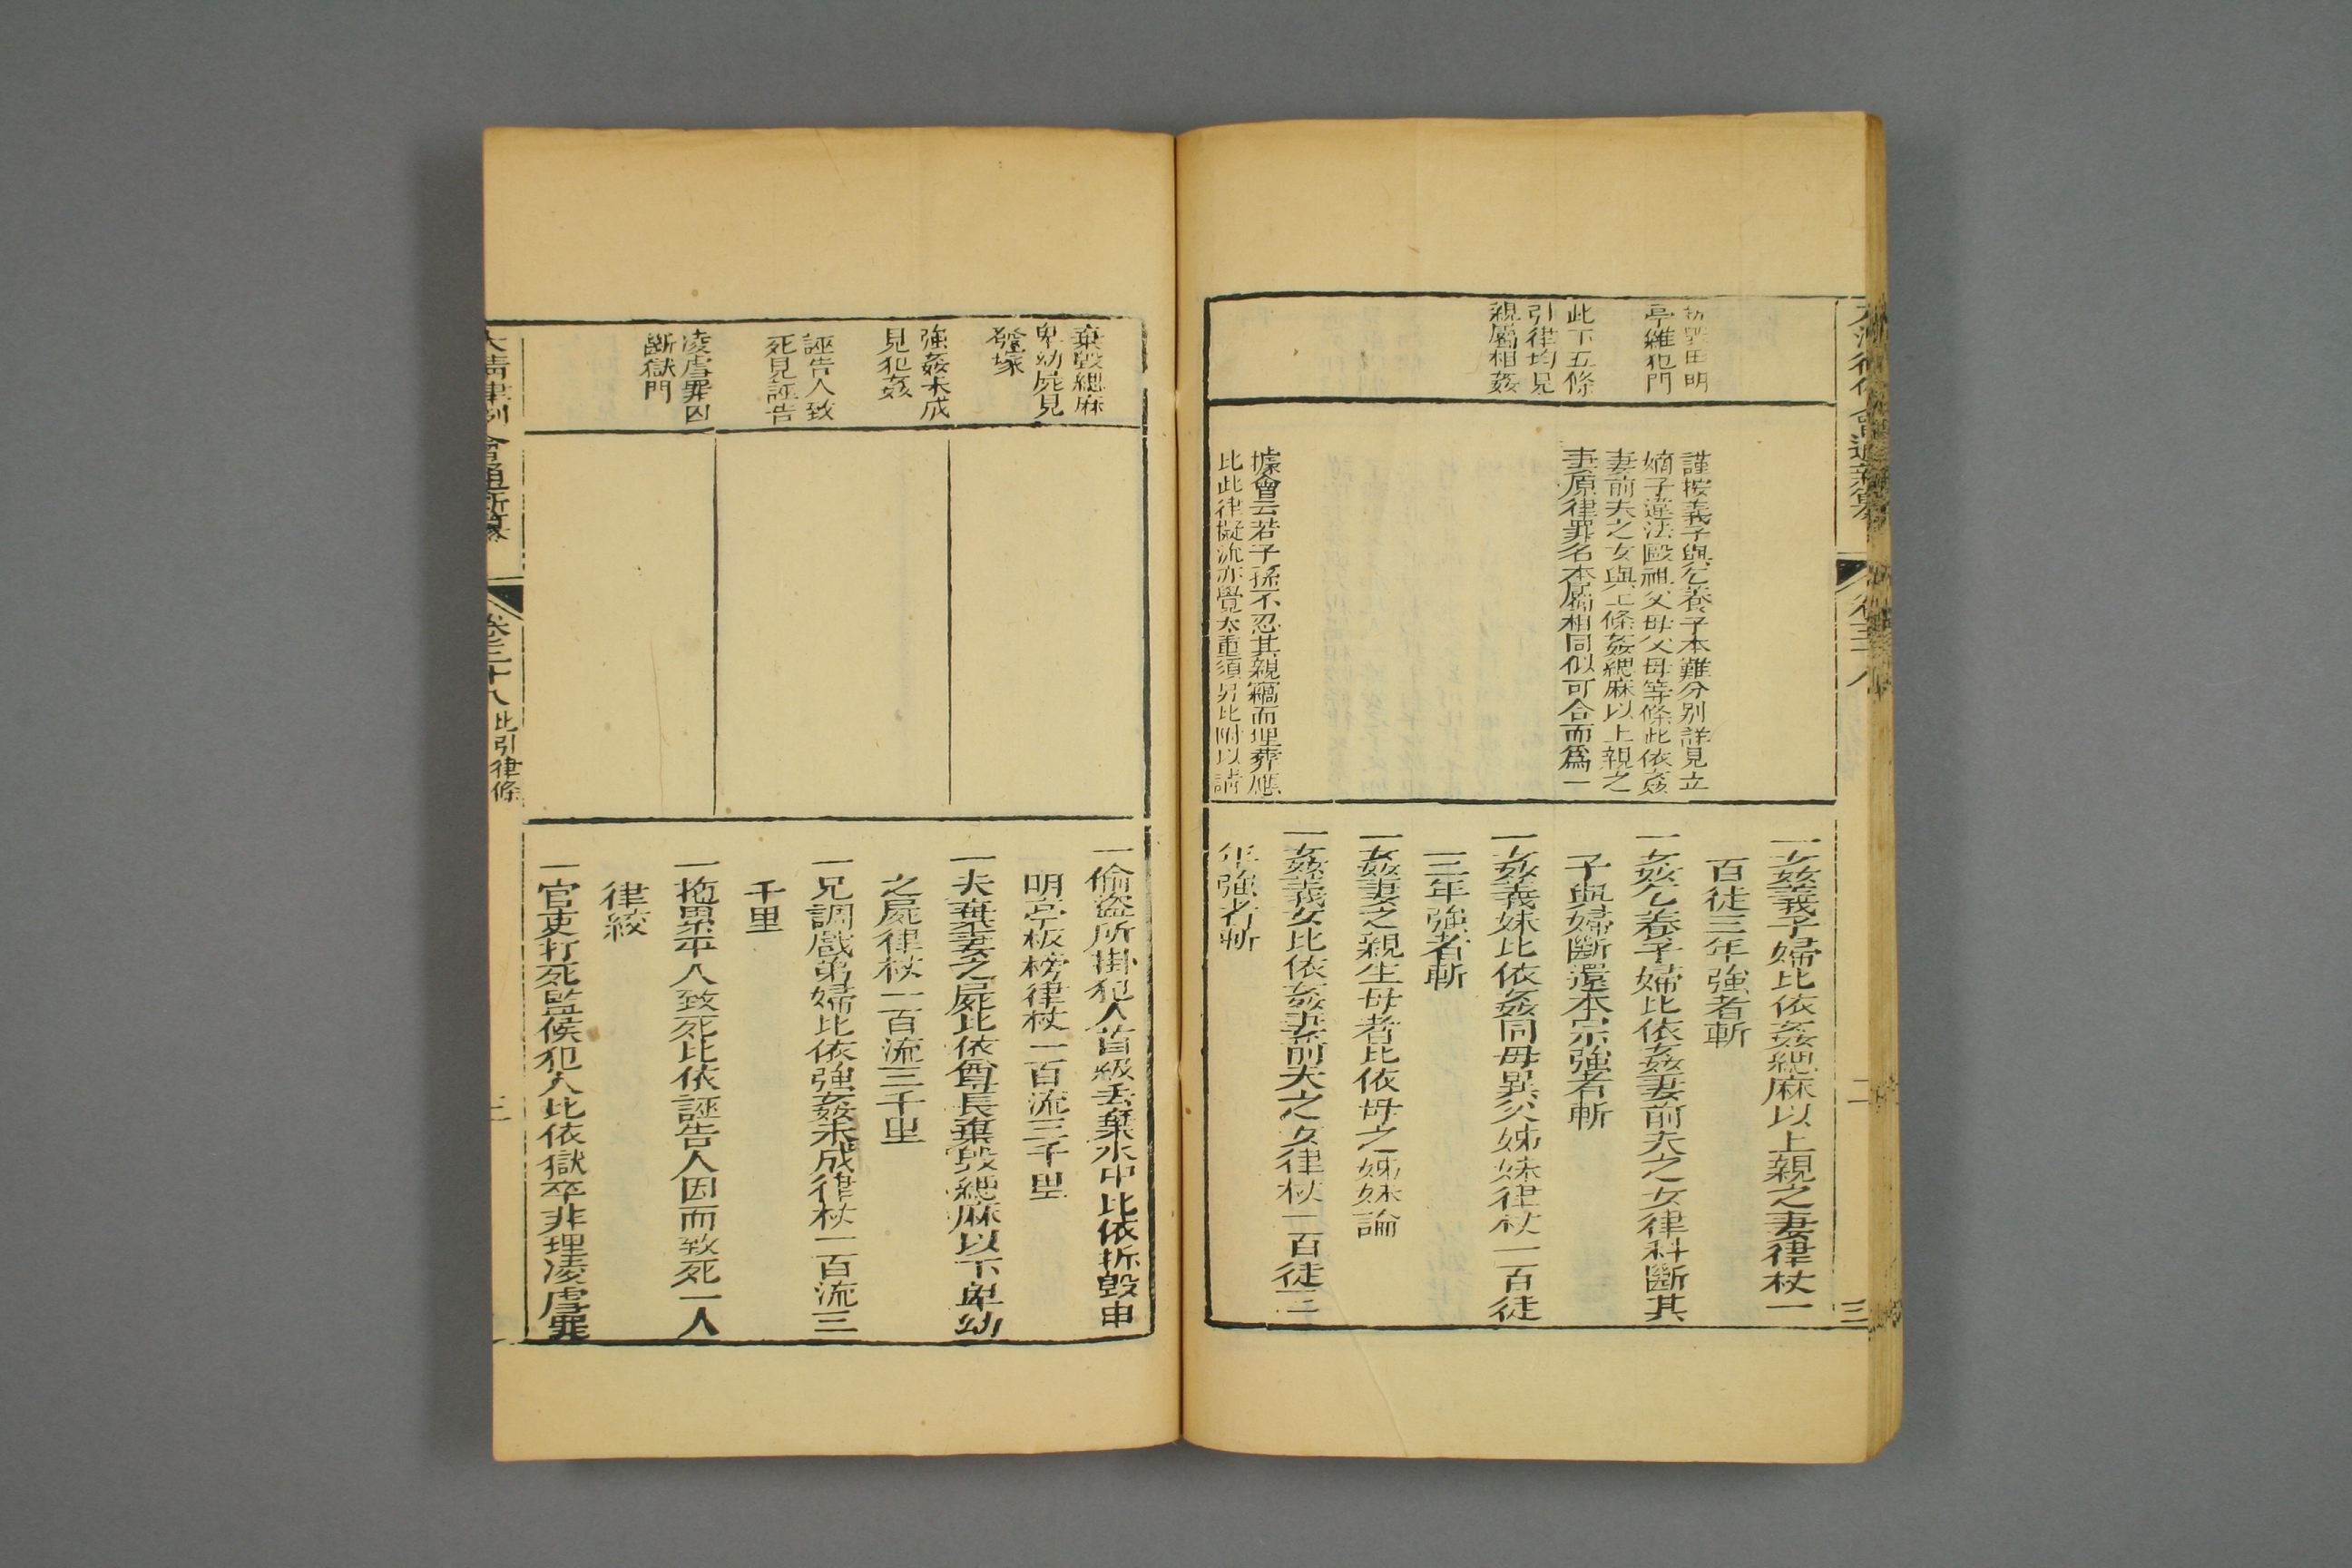 拆毀申明
亭雜犯門
此下五條
引律均見
親屬相姦
謹按義子與乞養子本難分別詳見立
嫡子違法毆祖父母父母等條此依姦
妻前夫之女與上條姦緦麻以上親之
妻原律罪名本屬相同似可合而爲一
據會云若子孫不忍其親 而埋葬應
比此律擬流亦覺太重須另比附以請
一姦義子婦比依姦緦麻以上親之妻律杖一
百徒三年強者斬
一姦乞養子婦比依姦妻前夫之女律科斷其
子與婦斷還本宗強者斬
一姦義妹比依姦同母異父姊妹律杖一百徒
三年強者斬
一姦妻之親生母者比依母之姊妹論
一姦義女比依姦妻前夫之女律杖一百徒三
年強者斬
棄毀緦麻
卑幼屍見
發塚
強姦未成
見犯姦
誣告人致
死見誣告
凌虐罪囚
斷獄門
一偷盜所掛犯人首級丟棄水中比依拆毀申
明亭板榜律杖一百流三千里
一夫棄妻之屍比依尊長棄毀緦麻以下卑幼
之屍律杖一百流三千里
一兄調戲弟婦比依強姦未成律杖一百流三
千里
一拖累平人致死比依誣告人因而致死一人
律絞
一官吏打死監候犯人比依獄卒非理凌虐罪
大清律例會通新纂
卷三十八
比引律條
三